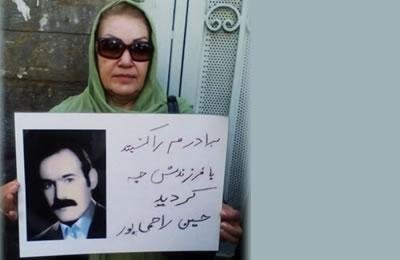 برادرم را کشتید
با فرزندش چه
کردید
حسین راحمی‌پور